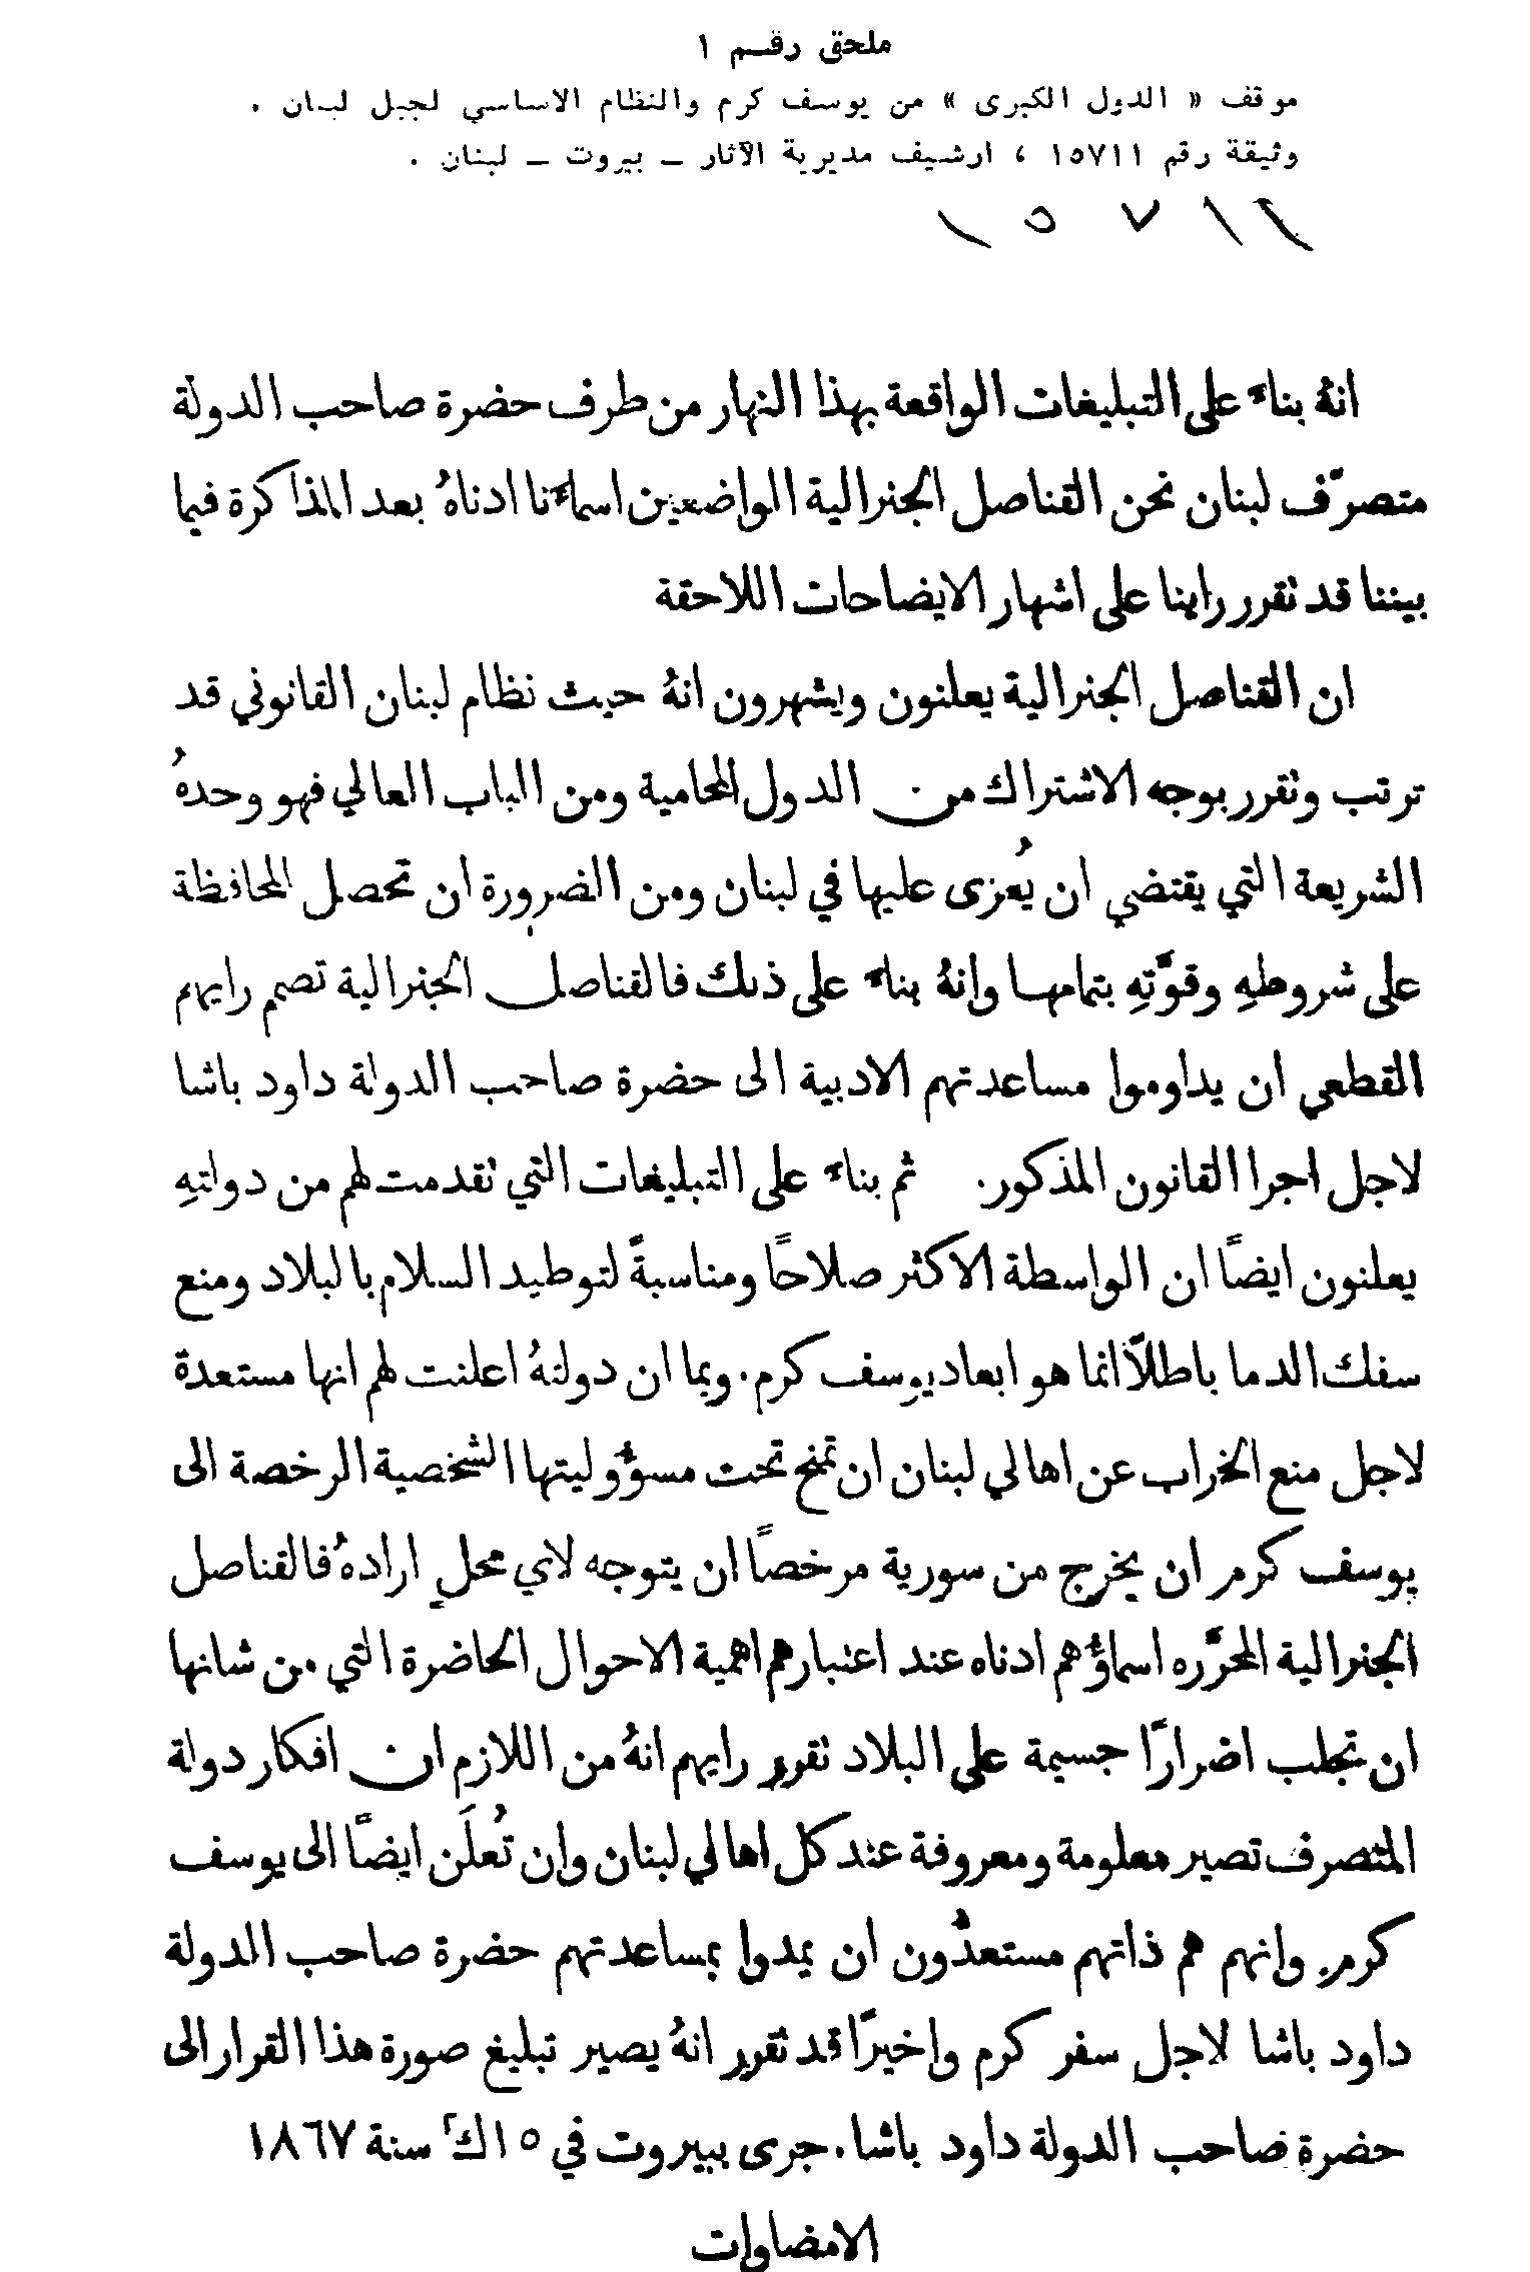 ملحق رقم ١
موقف « الدول الكبرى » من يوسف كرم والنظام الاساسي لجبل لبنان .
وثيقة رقم ١٥٧١١ ، ارشيف مديرية الآثار — بيروت — لبنان .
١٥٧١١
انهُ بناءً على التبليغات الواقعة بهذا النهار من طرف حضرة صاحب الدولة
متصرّف لبنان نحن القناصل الجنرالية الواضعين اسماءَنا ادناهُ بعد المذاكرة فيما
بيننا قد تقرر راينا على اشهار الايضاحات اللاحقة
ان القناصل الجنرالية يعلنون ويشهرون انهُ حيث نظام لبنان القانوني قد
ترتب وتقرر بوجه الاشتراك من الدول المحامية ومن الباب العالي فهو وحدهُ
الشريعة التي يقتضي ان يُعزى عليها في لبنان ومن الضرورة ان تحصل المحافظة
على شروطهِ وقوَّتهِ بتمامها وانهُ بناءً على ذلك فالقناصل الجنرالية تصمم رايهم
القطعي ان يداوموا مساعدتهم الادبية الى حضرة صاحب الدولة داود باشا
لاجل اجرا القانون المذكور. ثم بناءً على التبليغات التي تقدمت لهم من دولتهِ
يعلنون ايضاً ان الواسطة الاكثر صلاحًا ومناسبةً لتوطيد السلام بالبلاد ومنع
سفك الدما باطلاً انما هو ابعاد يوسف كرم. وبما ان دولتهُ اعلنت لهم انها مستعدة
لاجل منع الخراب عن اهالي لبنان ان تمنح تحت مسؤُوليتها الشخصية الرخصة الى
يوسف كرم ان يخرج من سورية مرخصاً ان يتوجه لاي محلٍ ارادهُ فالقناصل
الجنرالية المحرَّره اسماؤُهم ادناه عند اعتبارهم اهمية الاحوال الحاضرة التي من شانها
ان تجلب اضرارًا جسيمة على البلاد تقرر رايهم انهُ من اللازم ان افكار دولة
المتصرف تصير معلومة ومعروفة عند كل اهالي لبنان وان تُعلَن ايضًا الى يوسف
كرم. وانهم هم ذاتهم مستعدُّون ان يمدوا بمساعدتهم حضرة صاحب الدولة
داود باشا لاجل سفر كرم واخيرًا قد تقرر انهُ يصير تبليغ صورة هذا القرار الى
حضرة صاحب الدولة داود باشا. جرى ببيروت في ١٥ ك٢ سنة ١٨٦٧
الامضاوات